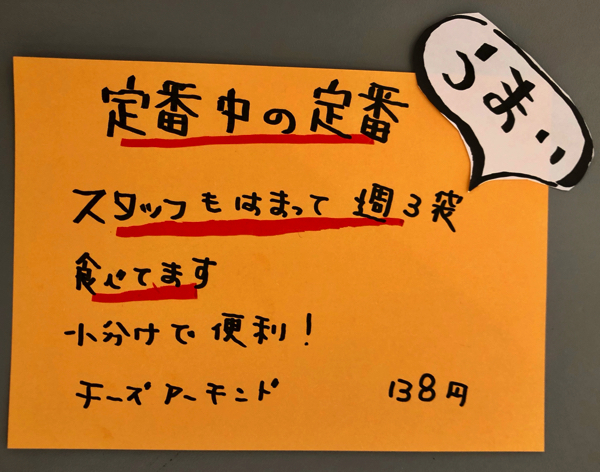 定番中の定番
うまい
スタッフもはまって週3袋
食べてます
小分けで便利!
チーズアーモンド 138円